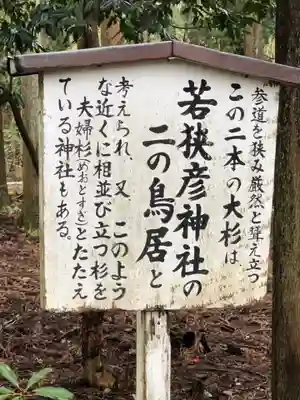 参道を狭み厳然と聳え立つ
この二本の大杉は
若狭彦神社の
二の鳥居と
考えられ、又、このよう
な近くに相並び立つ杉を
夫婦杉(めおとすぎ)とたたえ
ている神社もある。